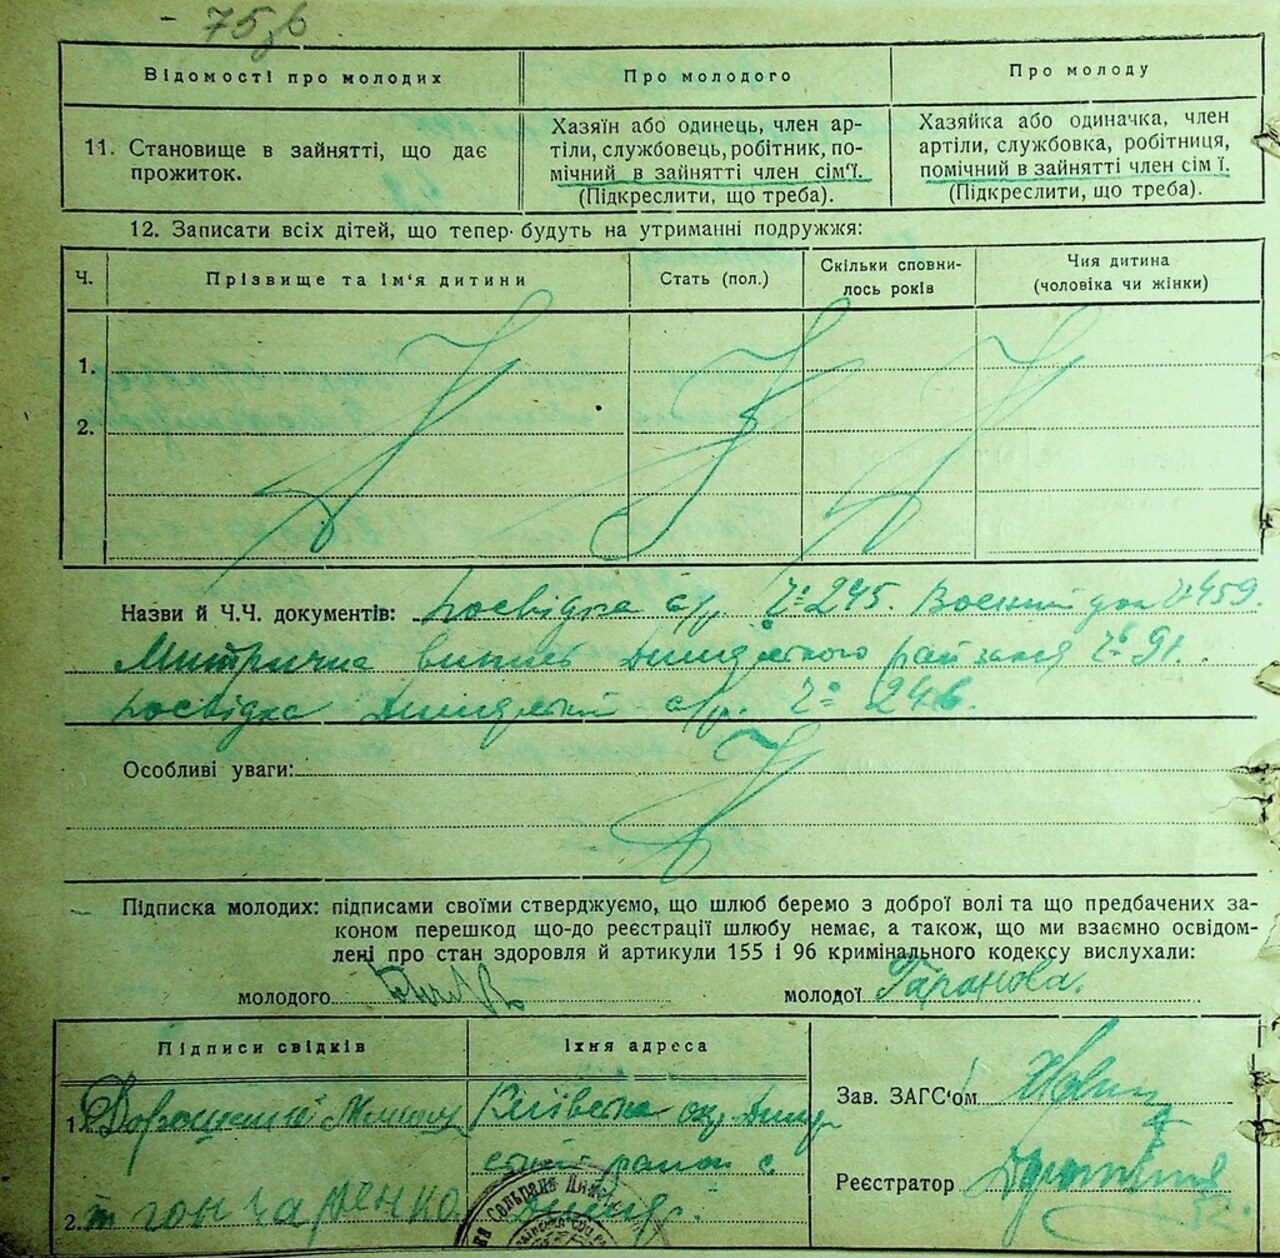 75зв
Відомості про молодих
Про молодого
Про молоду
11. Становище в зайнятті, що дає
прожиток.
Хазяїн або одинець, член ар-
тіли, службовець, робітник, по-
мічний в зайнятті член сім'ї.
(Підкреслити, що треба).
Хазяйка або одиначка, член
артіли, службовка, робітниця,
помічний в зайнятті член сім ї.
(Підкреслити, що треба).
12. Записати всіх дітей, що тепер будуть на утриманні подружжя:
Ч.
Прізвище та ім'я дитини
Стать (пол.)
Скільки сповни-
лось років
Чия дитина
(чоловіка чи жінки)
1.
2.
Назви й Ч.Ч. документів: посвідка с/р. № 245. Воєнний док № 459.
Митрична випись Димерського райзагсу № 91.
посвідка Димерської с/р. № 246.
Особливі уваги:
Підписка молодих: підписами своїми стверджуємо, що шлюб беремо з доброї волі та що предбачених за-
коном перешкод що-до реєстрації шлюбу немає, а також, що ми взаємно освідом-
лені про стан здоровля й артикули 155 і 96 кримінального кодексу вислухали:
молодого
молодої Гаранова.
Підписи свідків
Їхня адреса
Зав. ЗАГС'ом
1.
Київська окр Димер
ський район с.
Димер.
Реєстратор
2. Гончаренко